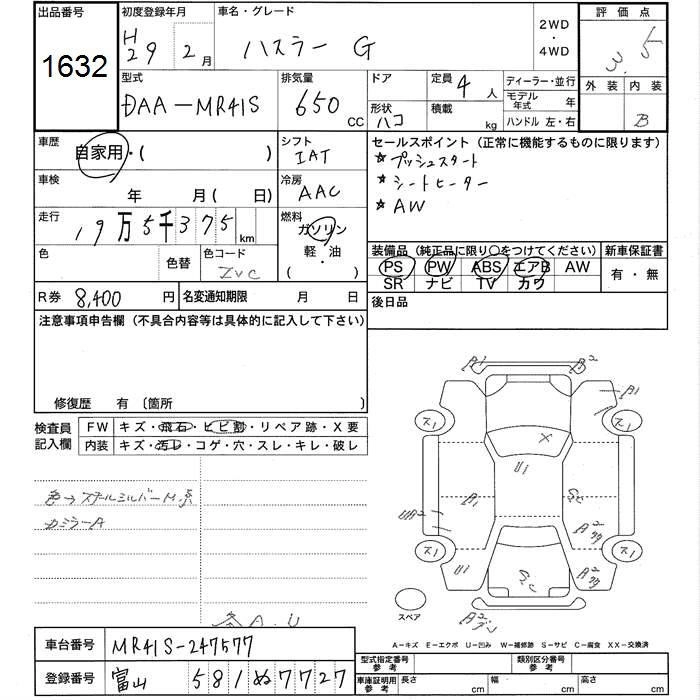 出品番号
1632
初度登録年月
H29 2月
車名・グレード
ハスラー G
2WD
・
4WD
評価点
3.5
外装 内装
B
型式
DAA-MR41S
排気量
650 CC
ドア
形状
ハコ
定員 4 人
積載 kg
ディーラー・並行
モデル年式 年
ハンドル 左・右
車歴
自家用・( )
シフト
IAT
車検
年 月 ( 日)
冷房
AAC
走行
19万5千375 km
燃料
ガソリン
軽・油
( )
色 色替
色コード
ZVC
R券 8,400 円
名変通知期限 月 日
セールスポイント(正常に機能するものに限ります)
★プッシュスタート
★シートヒーター
★AW
装備品(純正品に限り○をつけてください)
PS PW ABS エアB AW
SR ナビ TV カワ
新車保証書
有・無
後日品
注意事項申告欄(不具合内容等は具体的に記入して下さい)
修復歴 有 〔箇所
検査員
記入欄
FW キズ・飛石・ヒビ割・リペア跡・X要
内装 キズ・汚レ・コゲ・穴・スレ・キレ・破レ
色→スチールシルバーM系
カミラーA
A1 A2
A1
ス1 ス1
X
U1
A1 Sc
UA2
A2
ス1 ス1
U1 Sc A2
スペア
A2
A,U
A−キズ E−エクボ U−凹み W−補修跡 S−サビ C−腐食 XX−交換済
車台番号 MR41S-247577
登録番号 富山 581 ぬ 7727
型式指定番号
参考
類別区分番号
参考
車庫証明用
参考
長さ cm
幅 cm
高さ cm